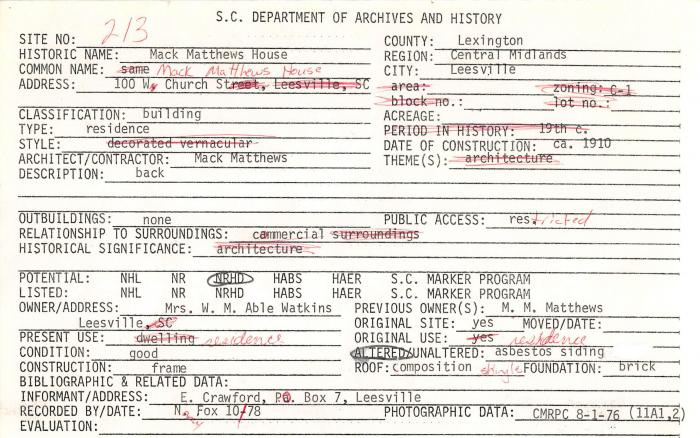 S.C. DEPARTMENT OF ARCHIVES AND HISTORY
SITE NO: 213
HISTORIC NAME: Mack Matthews House
COMMON NAME: same Mack Matthews House
ADDRESS: 100 W. Church Street, Leesville, SC
COUNTY: Lexington
REGION: Central Midlands
CITY: Leesville
area: zoning: C-1
block no.: lot no.:
CLASSIFICATION: building
TYPE: residence
STYLE: decorated vernacular
ARCHITECT/CONTRACTOR: Mack Matthews
DESCRIPTION: back
ACREAGE:
PERIOD IN HISTORY: 19th c.
DATE OF CONSTRUCTION: ca. 1910
THEME(S): architecture
OUTBUILDINGS: none PUBLIC ACCESS: restricted
RELATIONSHIP TO SURROUNDINGS: commercial surroundings
HISTORICAL SIGNIFICANCE: architecture
POTENTIAL: NHL NR NRHD HABS HAER S.C. MARKER PROGRAM
LISTED: NHL NR NRHD HABS HAER S.C. MARKER PROGRAM
OWNER/ADDRESS: Mrs. W. M. Able Watkins
Leesville, SC
PRESENT USE: dwelling residence
CONDITION: good
CONSTRUCTION: frame
PREVIOUS OWNER(S): M. M. Matthews
ORIGINAL SITE: yes MOVED/DATE:
ORIGINAL USE: yes residence
ALTERED/UNALTERED: asbestos siding
ROOF: composition shingle FOUNDATION: brick
BIBLIOGRAPHIC & RELATED DATA:
INFORMANT/ADDRESS: E. Crawford, P.O. Box 7, Leesville
RECORDED BY/DATE: N. Fox 10/78 PHOTOGRAPHIC DATA: CMRPC 8-1-76 (11A1,2)
EVALUATION: